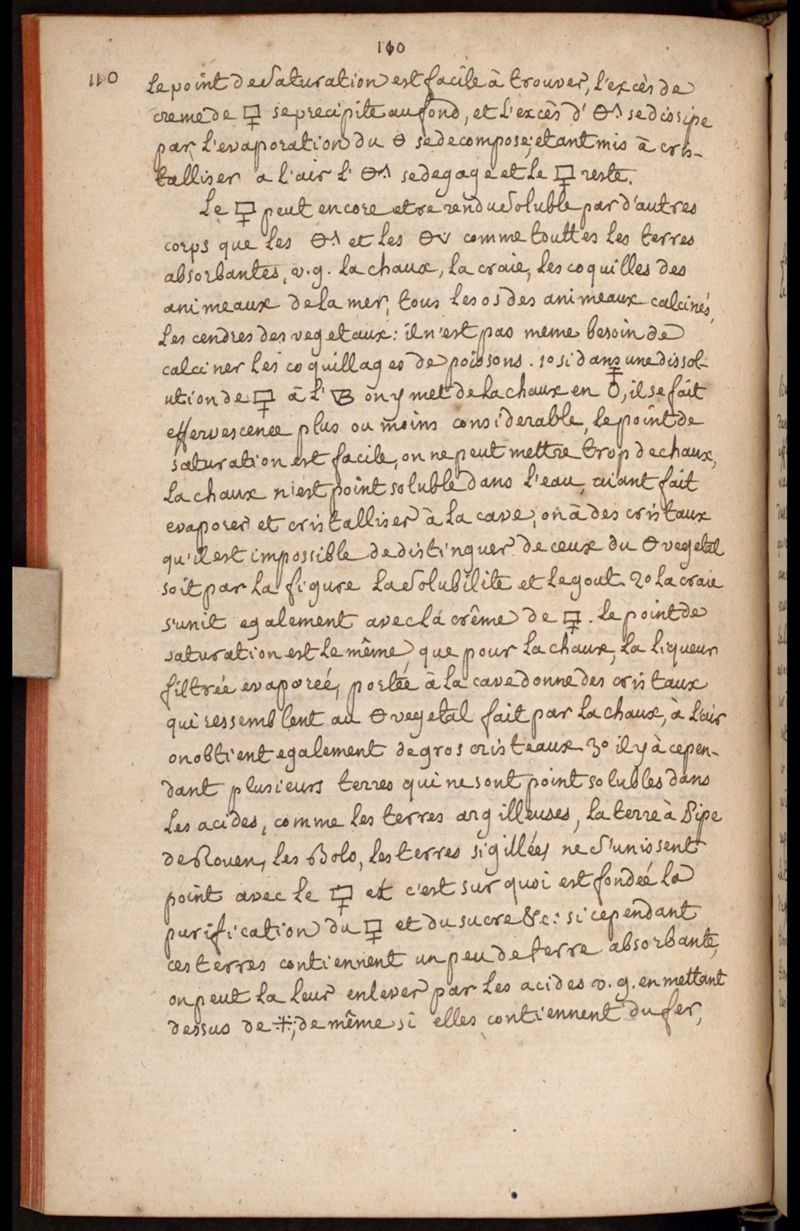 110
110 Le point de saturation est facile à trouver, l'excès de
creme de 🜿 se precipite au fond, et l'excès d' 🜔^ se dissipe
par l'evaporation du 🜔 se decompose; etant mis à cris-
talliser a l'air l' 🜔^ se degage et le 🜿 reste.
Le 🜿 peut encore etre rendue soluble par d'autres
corps que les 🜔^ et les 🜔v comme touttes les terres
absorbantes, v.g. la chaux, la craie, les coquilles des
animeaux de la mer, tous les os des animeaux calcinés,
Les cendres des vegetaux: il n'est pas meme besoin de
calciner les coquillages de poissons. 1o si dans une dissol-
ution de 🜿 à l' 🜄 on y met de la chaux en ♁, il se fait
effervescence plus ou moins considerable, le point de
saturation est facile, on ne peut mettre trop de chaux,
La chaux n'est point soluble dans l'eau, aiant fait
evaporer et cristalliser à la cave, on à des cristaux
qu'il est impossible de distinguer de ceux du 🜔 vegetal
soit par la figure la solubilité et le gout. 2o la craie
s'unit egalement avec la crême de 🜿. le point de
saturation est le même, que pour la chaux, la liqueur
filtrée evaporée, portée à la cave donne des cristaux
qui ressemblent au 🜔 vegetal fait par la chaux, à l'air
on obtient egalement de gros cristeaux 3o il y à cepen-
dant plusieurs terres qui ne sont point solubles dans
Les acides, comme les terres argilleuses, la terre à Pipe
de Rouen, les Bols, les terres sigillées ne s'unissent
point avec le 🜿 et c'est sur quoi est fondeé la
purification du 🜿 et du sucre &c: si cependant
ces terres contiennent un peu de terre absorbante,
on peut la leur enlever par les acides v.g. en mettant
dessus de 🜊, de même si elles contiennent du fer,